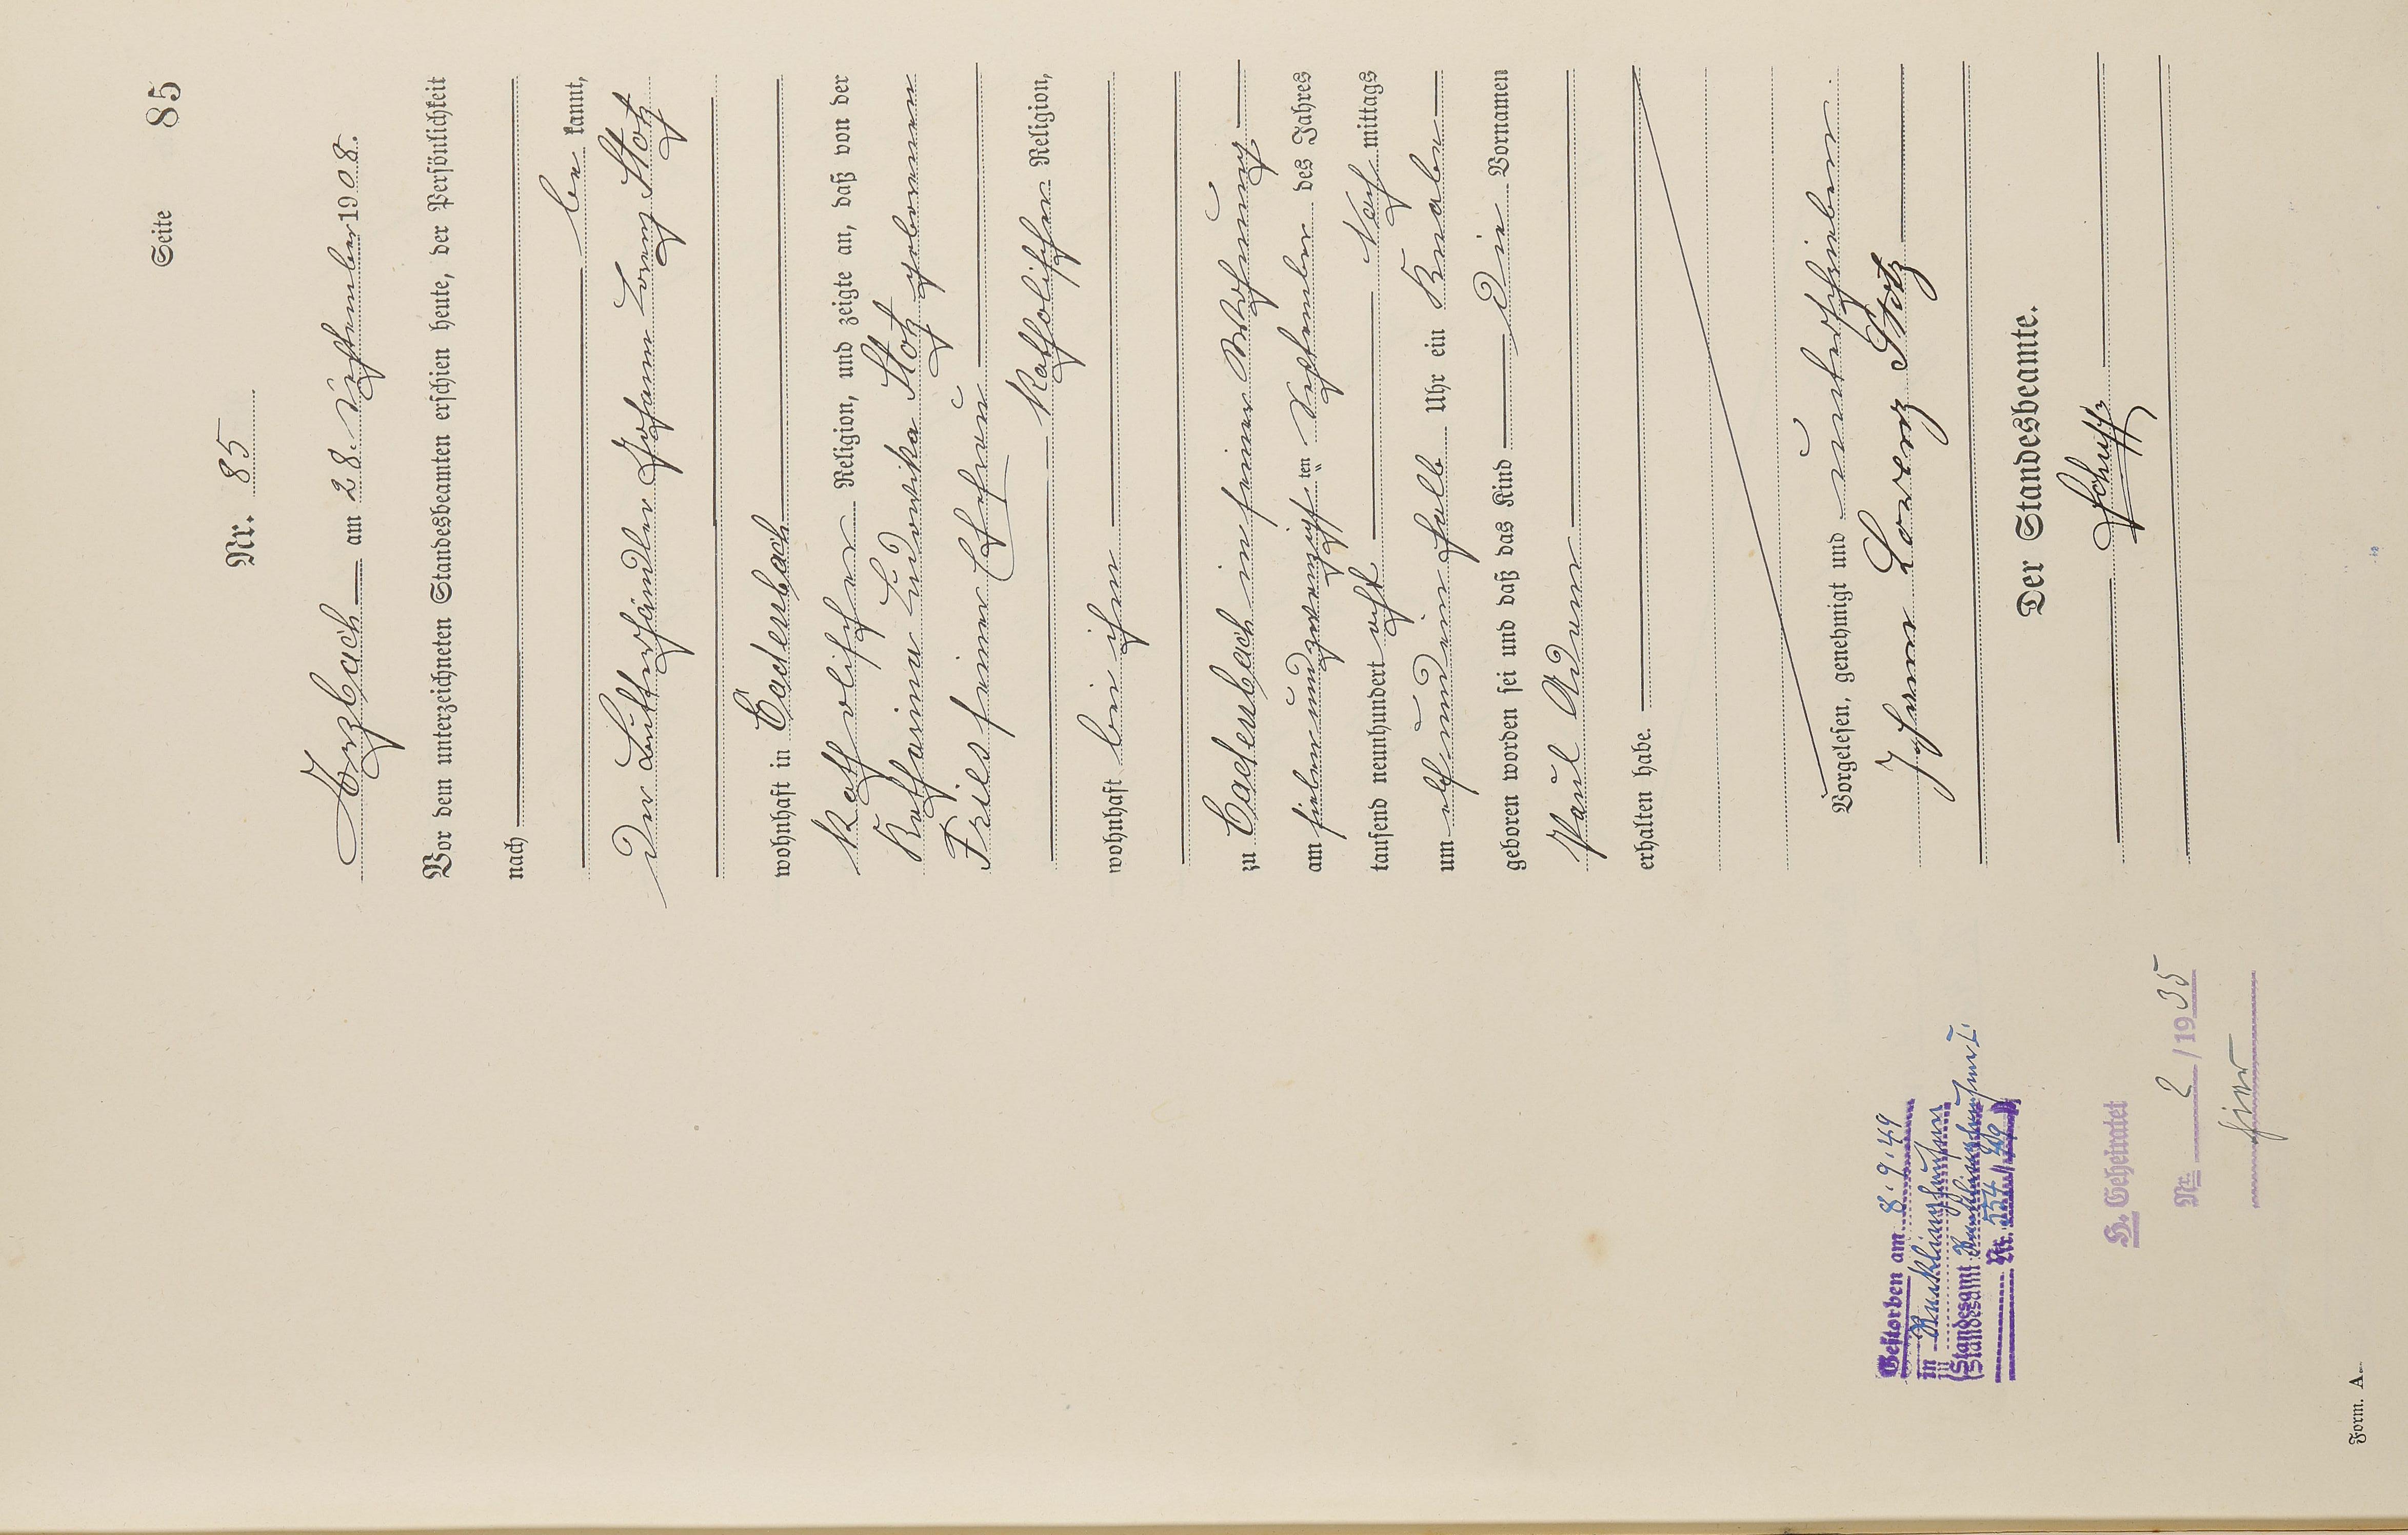 Seite 85
Nr. 85
Arzbach am 28. September 1908.
Vor dem unterzeichneten Standesbeamten erschien heute, der Persönlichkeit
nach
be kannt,
der Butterhändler Johann Lorenz Stotz
wohnhaft in Cadenbach
katholischer Religion, und zeigte an, daß von der
Katharina Ludovika Stotz geborenen
Fries seiner Ehefrau
katholischer Religion,
wohnhaft bei ihm
zu Cadenbach in seiner Wohnung
am sieben und zwanzigsten September des Jahres
tausend neunhundert acht Nach mittags
um elf und ein halb Uhr ein Knabe
geboren worden sei und daß das Kind die Vornamen
Paul Adam
erhalten habe.
Vorgelesen, genehmigt und unterschrieben.
Johann Lorenz Stotz
Der Standesbeamte.
Gestorben am 8.9.49
in Recklinghausen
(Standesamt Recklinghausen I.
Nr. 554/49)
H. Geheiratet
Nr. 2/1935
hier
Form. A.